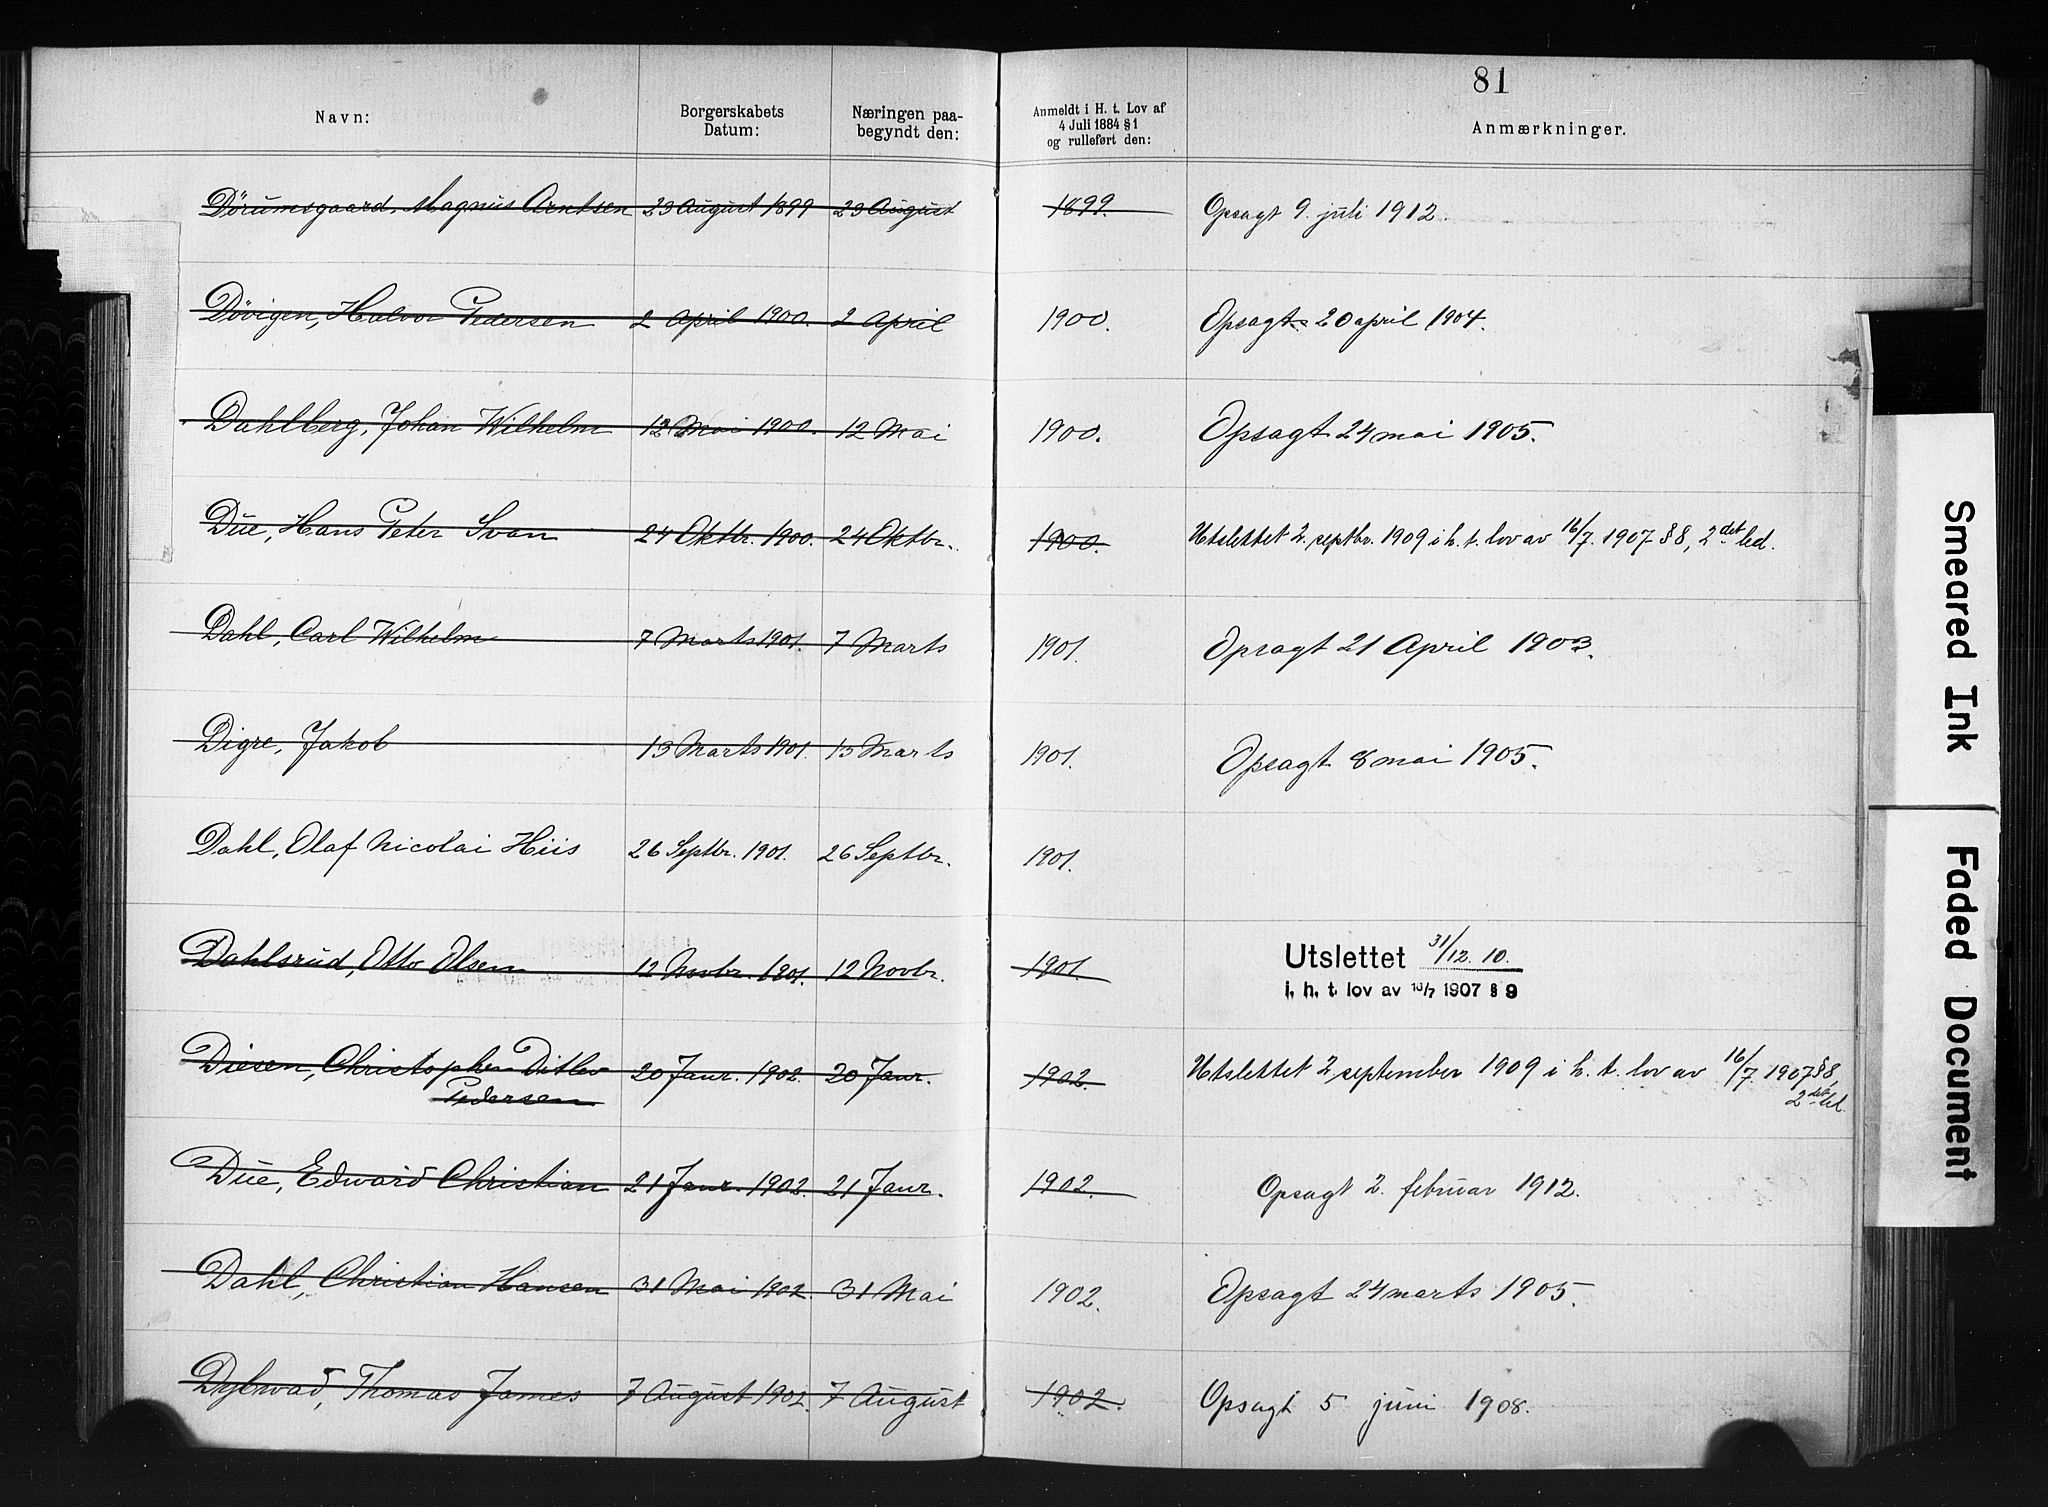 81
Navn: Borgerskabets Datum: Næringen paa-begyndt den: Anmeldt i H. t. Lov af 4 Juli 1884 § 1 og rulleført den: Anmærkninger.
Dörumsgaard, Magnus Arntsen 23 August 1899 23 August 1899. Opsagt 9. juli 1912.
Dövigen, Halvor Pedersen 2 April 1900. 2 April 1900. Opsagt 20 april 1904.
Dahlberg, Johan Wilhelm 12 Mai 1900. 12 Mai 1900. Opsagt 24 mai 1905.
Düe, Hans Peter Svan 24 Oktbr. 1900. 24 Oktbr. 1900. Utslettet 2. septbr. 1909 i h. t. lov av 16/7. 1907 § 8, 2det led.
Dahl, Carl Wilhelm 7 Marts 1901. 7 Marts 1901. Opsagt 21 April 1903.
Digre, Jakob 13 Marts 1901. 13 Marts 1901. Opsagt 8 mai 1905.
Dahl, Olaf Nicolai Hiis 26 Septbr. 1901. 26 Septbr. 1901.
Dahlsrud, Otto Olsen 12 Novbr. 1901. 12 Novbr. 1901. Utslettet 31/12. 10.
i. h. t. lov av 16/7 1907 § 9
Diesen, Christopher Ditlev 20 Janr. 1902. 20 Janr. 1902. Utslettet 2 september 1909 i h. t. lov av 16/7. 1907 § 8,
Pedersen 2det led.
Düe, Edward Christian 21 Janr. 1902. 21 Janr. 1902. Opsagt 2. februar 1912.
Dahl, Christian Hansen 31 Mai 1902. 31 Mai 1902. Opsagt 24 marts 1905.
Dybwad, Thomas James 7 August 1902. 7 August 1902. Opsagt 5 juni 1908.
Smeared Ink
Faded Document